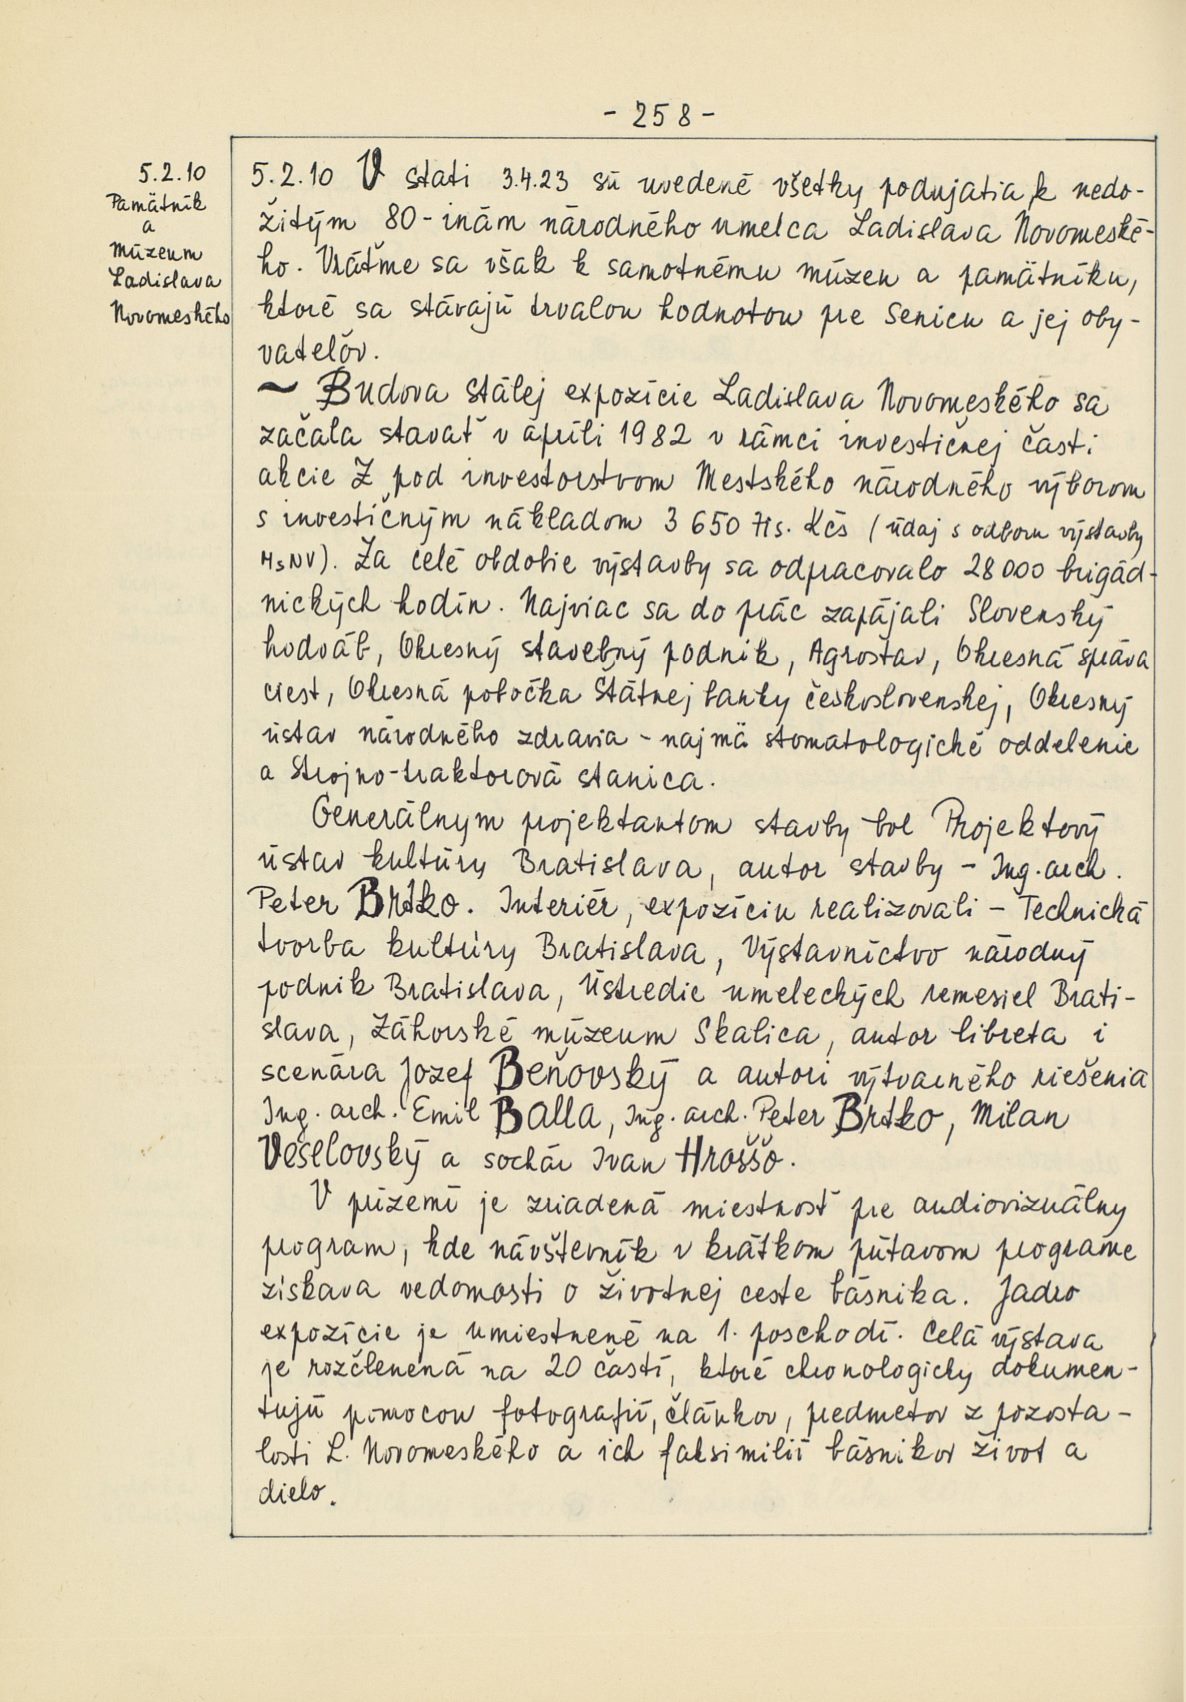 - 258 -
5.2.10
Pamätník
a
múzeum
Ladislava
Novomeského
5.2.10 V stati 3.4.23 sú uvedené všetky podujatia k nedo-
žitým 80-inám národného umelca Ladislava Novomeské-
ho. Vráťme sa však k samotnému múzeu a pamätníku,
ktoré sa stávajú trvalou hodnotou pre Senicu a jej oby-
vateľov.
~ Budova Stálej expozície Ladislava Novomeského sa
začala stavať v apríli 1982 v rámci investičnej časti
akcie Z pod investorstvom Mestského národného výborom
s investičným nákladom 3 650 tis. Kčs (údaj s odboru výstavby
MsNV). Za celé obdobie výstavby sa odpracovalo 28 000 brigád-
nických hodín. Najviac sa do prác zapájali Slovenský
hodváb, Okresný stavebný podnik, Agrostav, Okresná správa
ciest, Okresná pobočka Štátnej banky československej, Okresný
ústav národného zdravia - najmä stomatologické oddelenie
a Strojno-traktorová stanica.
Generálnym projektantom stavby bol Projektový
ústav kultúry Bratislava, autor stavby - Ing. arch.
Peter Brtko. Interiér, expozíciu realizovali - Technická
tvorba kultúry Bratislava, Výstavníctvo národný
podnik Bratislava, Ústredie umeleckých remesiel Brati-
slava, Záhorské múzeum Skalica, autor libreta i
scenára Jozef Beňovský a autori výtvarného riešenia
Ing. arch. Emil Balla, Ing. arch. Peter Brtko, Milan
Veselovský a sochár Ivan Hroššo.
V prízemí je zriadená miestnosť pre audiovizuálny
program, kde návštevník v krátkom pútavom programe
získava vedomosti o životnej ceste básnika. Jadro
expozície je umiestnené na 1. poschodí. Celá výstava
je rozčlenená na 20 častí, ktoré chronologicky dokumen-
tujú pomocou fotografií, článkov, predmetov z pozosta-
losti L. Novomeského a ich faksimilií básnikov život a
dielo.